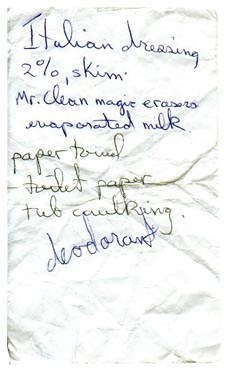 Italian dressing
2%, skim.
Mr. Clean magic erasers
evaporated milk
paper towel
toilet paper
tub caulking.
deodorant